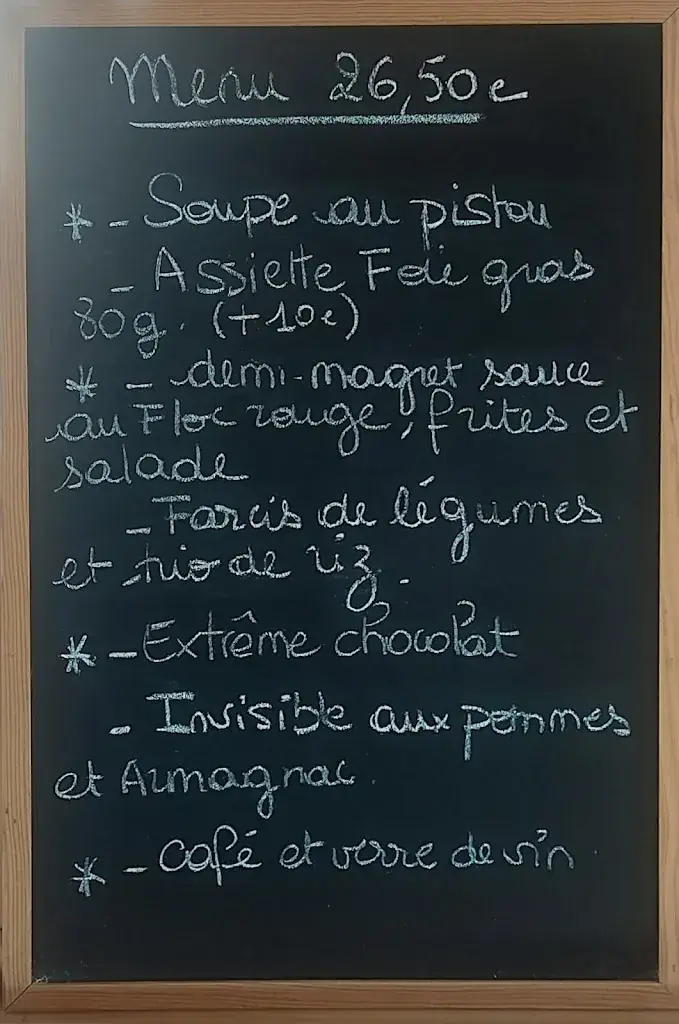 Menu 26,50e
* - Soupe au pistou
- Assiette Foie gras
80g. (+10e)
* - demi-magret sauce
au Floc rouge, frites et
salade
- Farcis de légumes
et trio de riz.
* - Extrême chocolat
- Invisible aux pommes
et Armagnac.
* - Café et verre de vin.